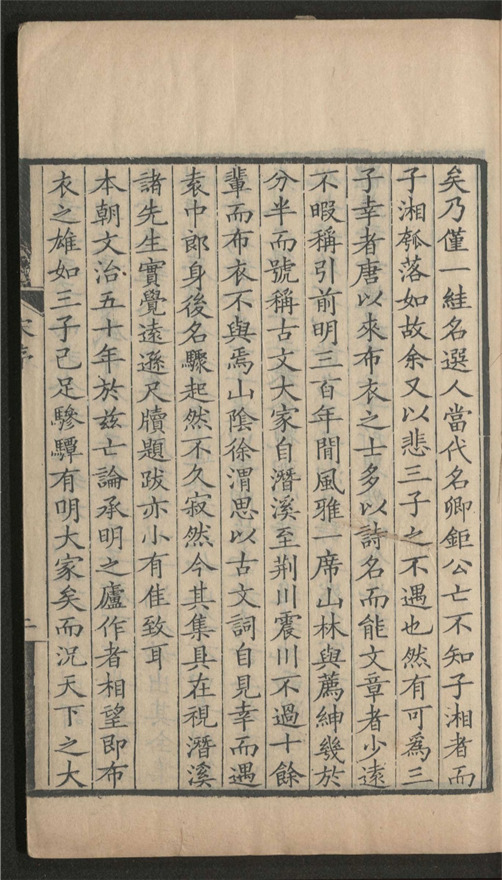 矣乃僅一絓名選人當代名卿鉅公亡不知子湘者而
子湘瓠落如故余又以悲三子之不遇也然有可為三
子幸者唐以來布衣之士多以詩名而能文章者少遠
不暇稱引前明三百年間風雅一席山林與薦紳幾於
分半而號稱古文大家自潛溪至荆川震川不過十餘
輩而布衣不與焉山陰徐渭思以古文詞自見幸而遇
袁中郎身後名驟起然不久寂然今其集具在視潛溪
諸先生實覺遠遜尺牘題跋亦小有隹致耳
本朝文治五十年於兹亡論承明之廬作者相望即布
衣之雄如三子已足驂驔有明大家矣而况天下之大
序
二